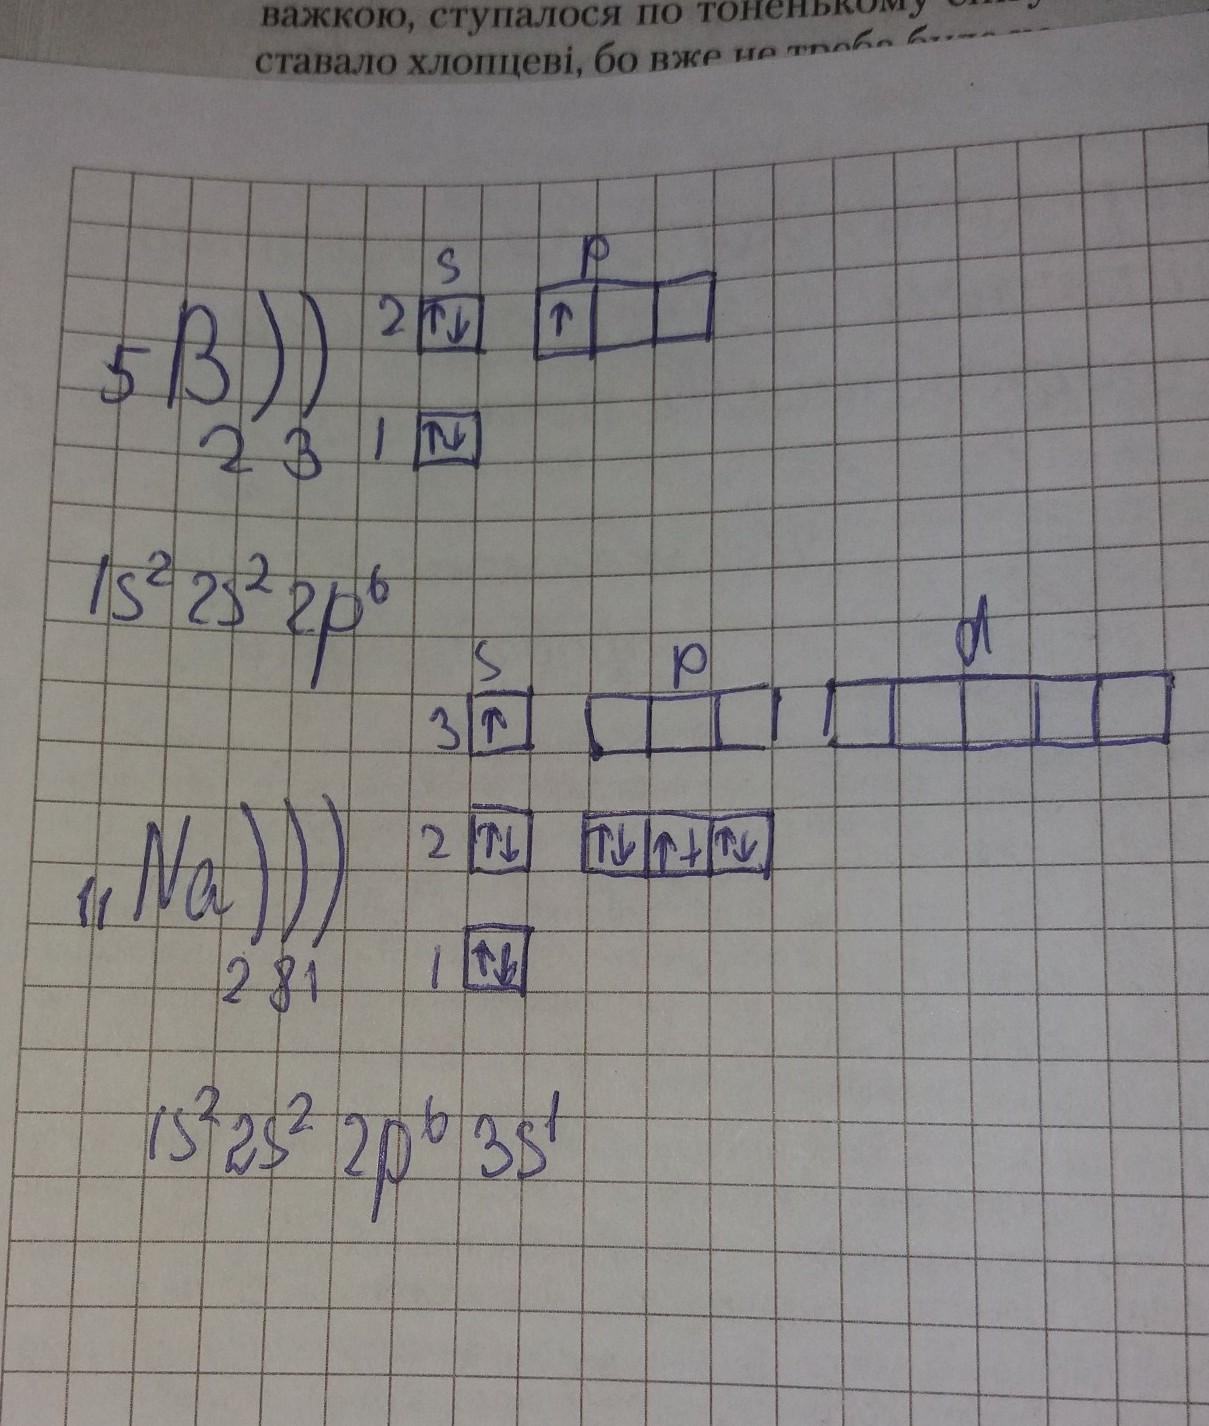 важкою, ступалося по тоненькому
ставало хлопцеві, бо вже не треба
s p
2 ↑↓ ↑
5 B ) )
2 3 1 ↑↓
1s² 2s² 2p⁶
s p d
3 ↑
2 ↑↓ ↑↓ ↑↓ ↑↓
11 Na ) ) )
2 8 1 1 ↑↓
1s² 2s² 2p⁶ 3s¹